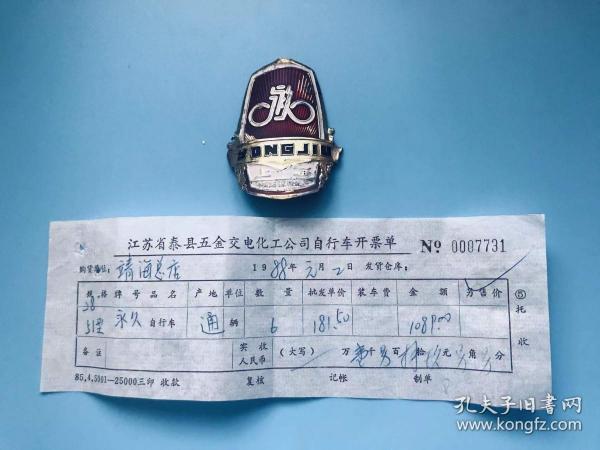 永久
YONGJIU
江苏省泰县五金交电化工公司自行车开票单 Nº 0007731
购货单位: 靖海总店 1988年元月2日 发货仓库:
规格 牌号品名 产地 单位 数量 批发单价 装车费 金额 另售价
28
51型 永久自行车 通 辆 6 181.50 1089.00
⑤托收
备注 实收人民币 (大写) 万壹千另百捌拾玖元另角另分
85.4.5001—25000三印 收款 复核 记帐 制单
孔夫子旧书网
www.kongfz.com